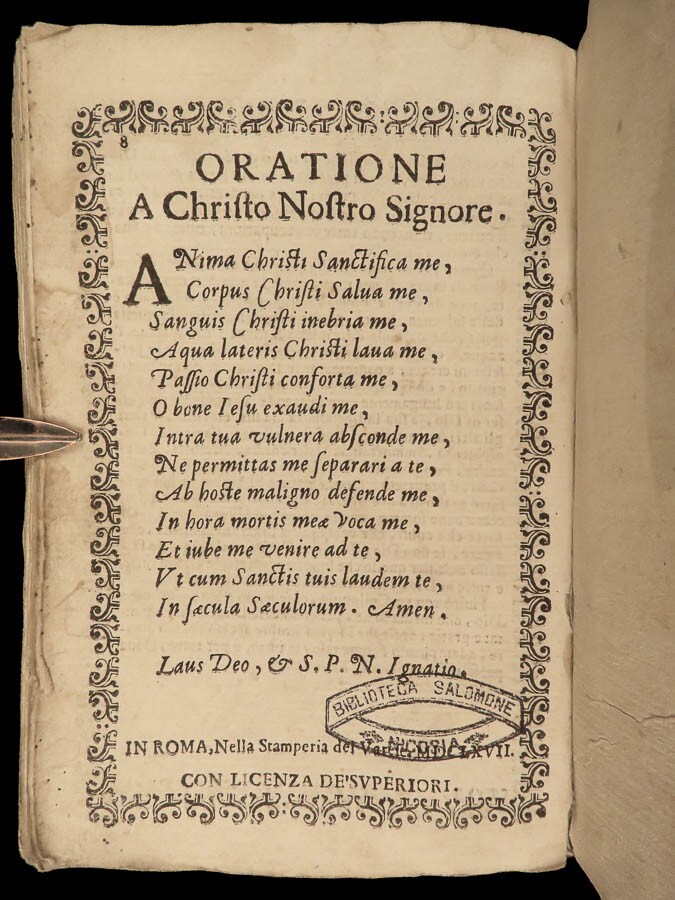 8
ORATIONE
A Chriſto Noſtro Signore.
ANima Chriſti Sanctifica me,
Corpus Chriſti Salua me,
Sanguis Chriſti inebria me,
Aqua lateris Chriſti laua me,
Paſſio Chriſti conforta me,
O bone Ieſu exaudi me,
Intra tua vulnera abſconde me,
Ne permittas me ſeparari a te,
Ab hoſte maligno defende me,
In hora mortis meæ voca me,
Et iube me venire ad te,
Vt cum Sanctis tuis laudem te,
In ſæcula Sæculorum. Amen.
Laus Deo, & S. P. N. Ignatio.
BIBLIOTECA SALOMONE
NICOSIA
IN ROMA, Nella Stamperia del MDCLXVII.
CON LICENZA DE'SVPERIORI.